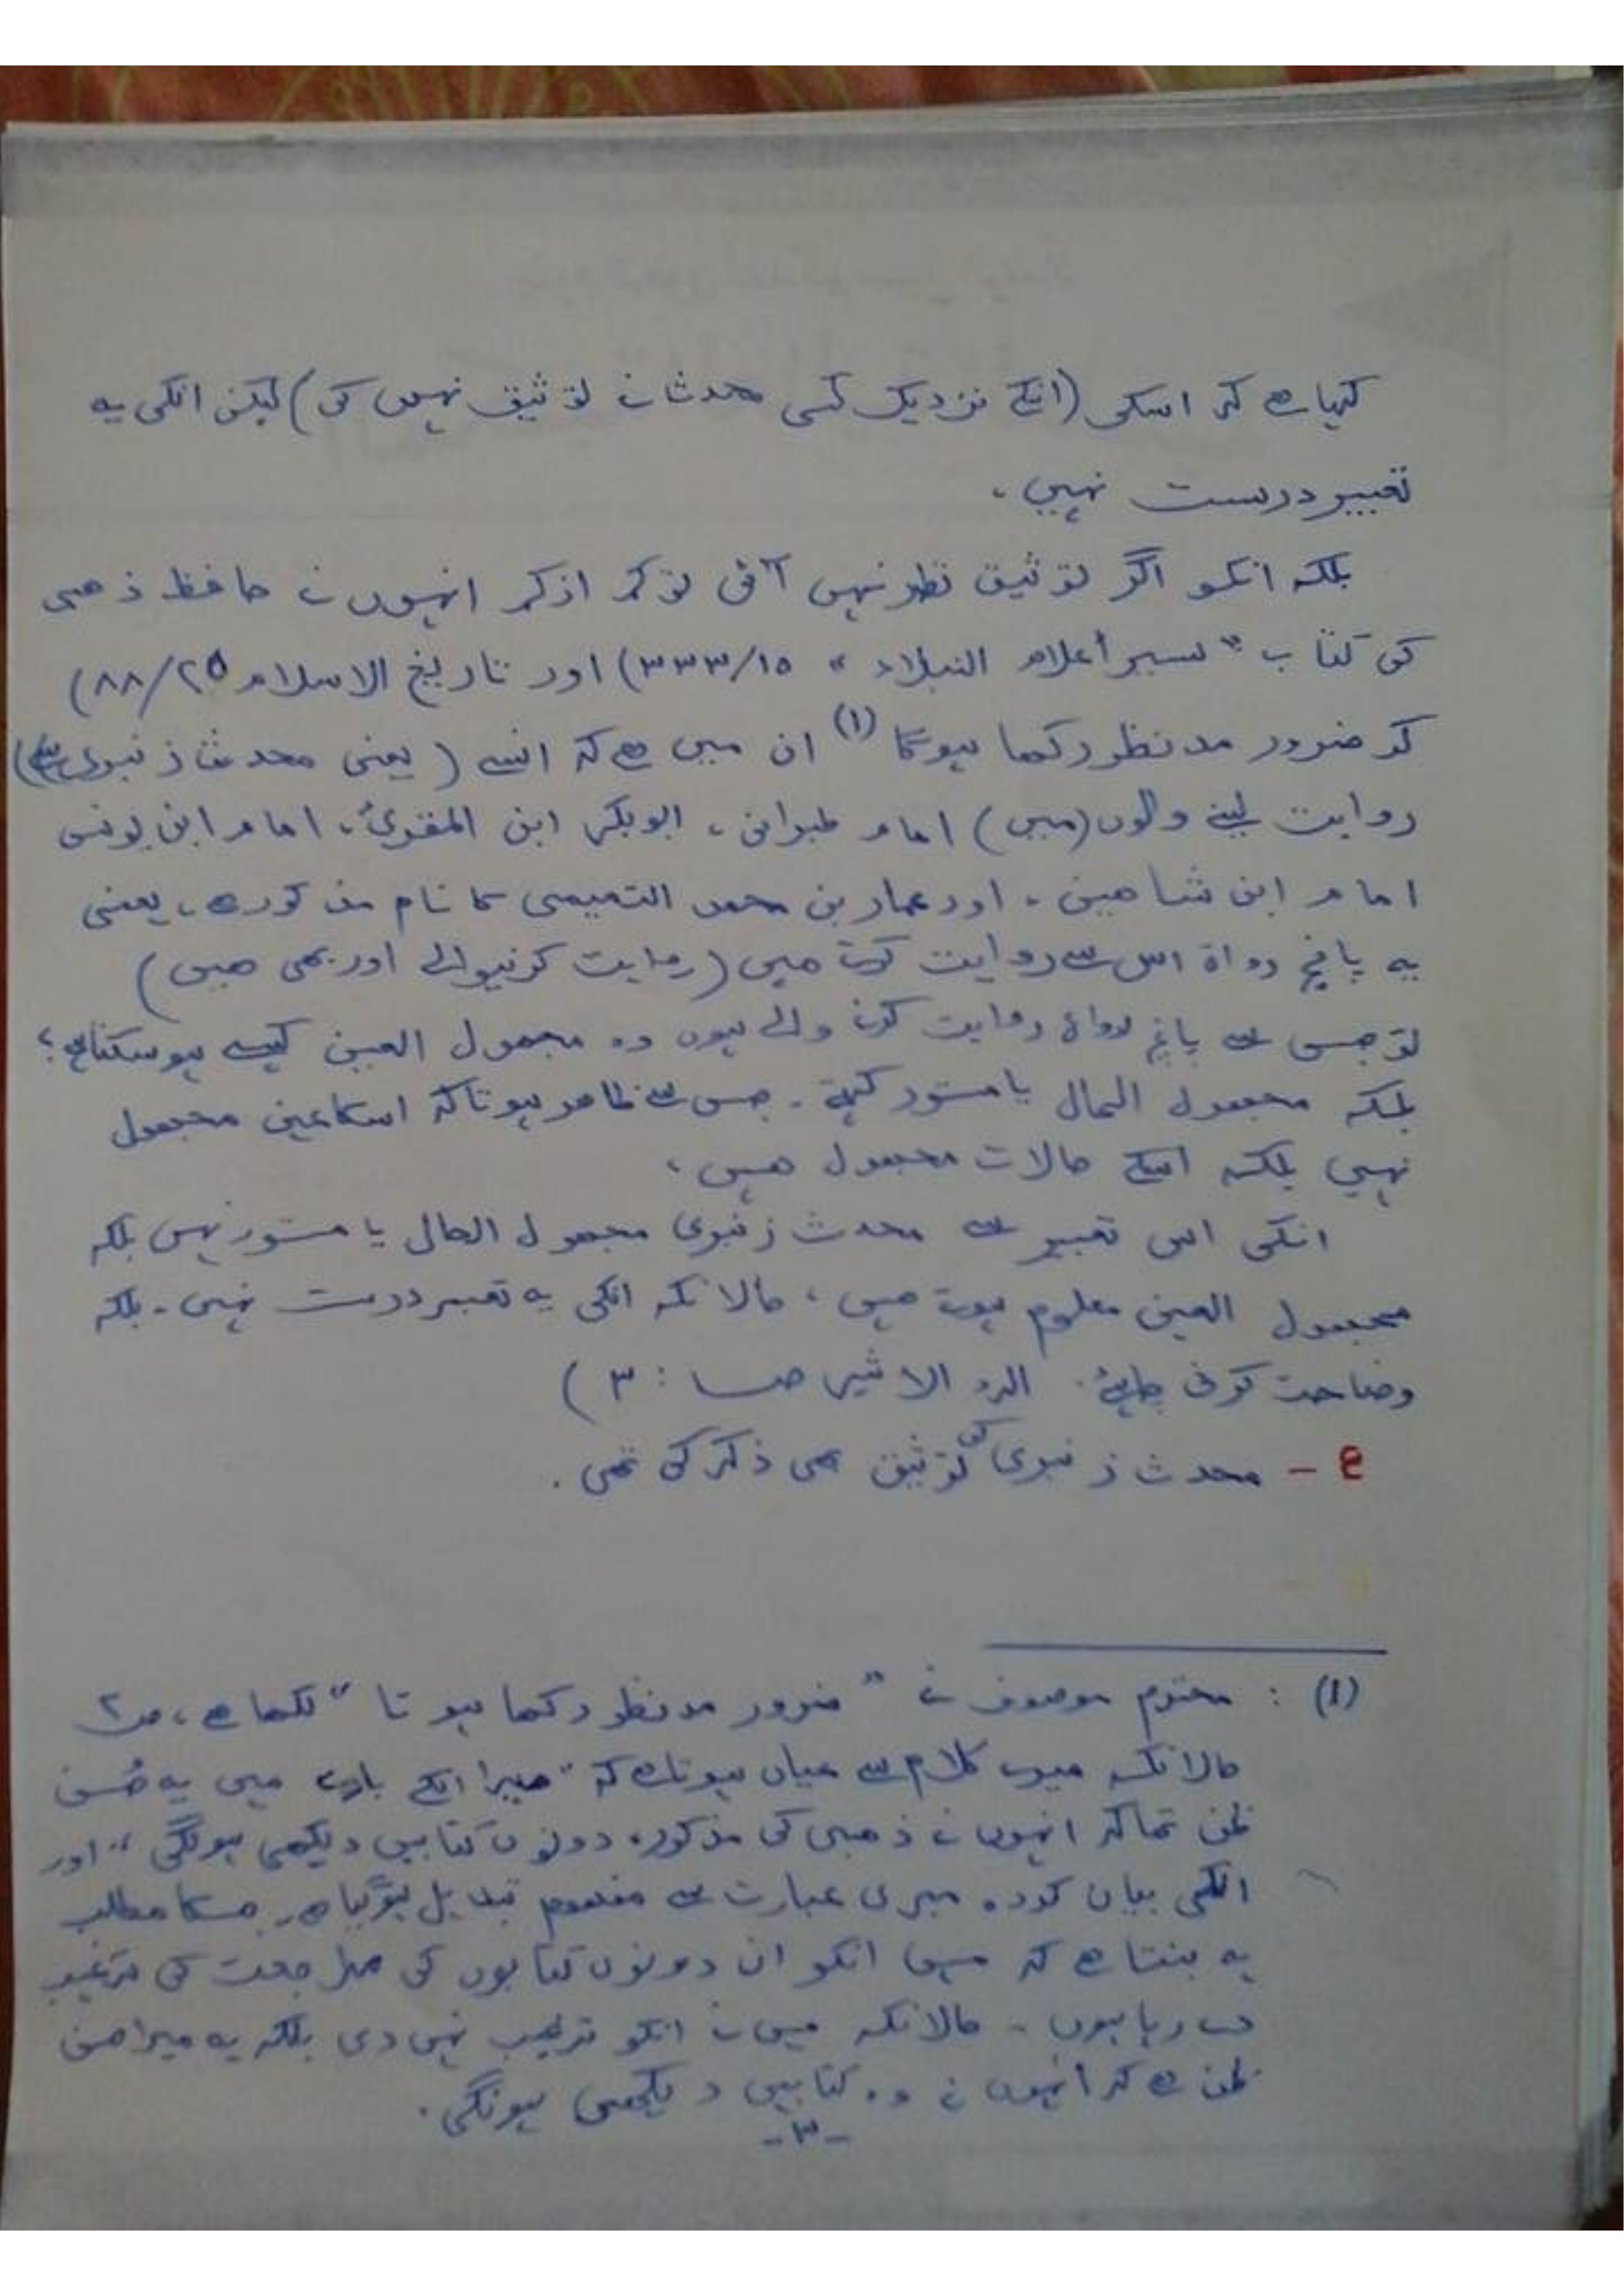 کہا ہے کہ اسکی (انکے نزدیک کسی محدث نے توثیق نہیں کی) لیکن انکی یہ
تعبیر درست نہیں ،
بلکہ انکو اگر توثیق نظر نہیں آئی تو کم از کم انہوں نے حافظ ذھبی
کی کتاب " سیر أعلام النبلاء " ١٥/٣٣٣) اور تاریخ الاسلام ٢٥/٨٨)
کو ضرور مد نظر رکھا ہوگا (١) ان میں ہے کہ انسے ( یعنی محدث زنبری سے)
روایت لینے والوں (میں) امام طبرانی ، ابوبکر ابن المقرئ ، امام ابن یونس
امام ابن شاھین ، اور عمار بن محمد التمیمی کا نام مذکور ہے ، یعنی
یہ پانچ رواۃ اس سے روایت کرتے ھیں (روایت کرنیوالے اور بھی ھیں)
تو جس سے پانچ رواۃ روایت کرنے والے ہوں وہ مجھول العین کیسے ہو سکتا ہے ؟
بلکہ مجھول الحال یا مستور کہتے ۔ جس سے ظاھر ہوتا کہ اسکا عین مجھول
نہیں بلکہ اسکے حالات مجھول ھیں ،
انکی اس تعبیر سے محدث زنبری مجھول الحال یا مستور نہیں بلکہ
مجھول العین معلوم ہوتے ھیں ، حالانکہ انکی یہ تعبیر درست نہیں ۔ بلکہ
وضاحت کرنی چاہئے . الرد الاثیر صـ : ٣ )
٤ – محدث زنبری کی توثیق بھی ذکر کی تھی .
(١) : محترم موصوف نے " ضرور مد نظر رکھا ہوتا " لکھا ہے ، صـ ٢
حالانکہ میرے کلام سے عیاں ہوتا ہے کہ " میرا انکے بارے میں یہ حُسن
ظن تھا کہ انہوں نے ذھبی کی مذکورہ دونوں کتابیں دیکھی ہونگی " اور
انکی بیان کردہ میری عبارت سے مفہوم تبدیل ہو گیا ہے ۔ جسکا مطلب
یہ بنتا ہے کہ میں انکو ان دونوں کتابوں کی مراجعت کی ترغیب
دے رہا ہوں ۔ حالانکہ میں نے انکو ترغیب نہیں دی بلکہ یہ میرا حسن
ظن ہے کہ انہوں نے وہ کتابیں دیکھی ہونگی .
-٣-